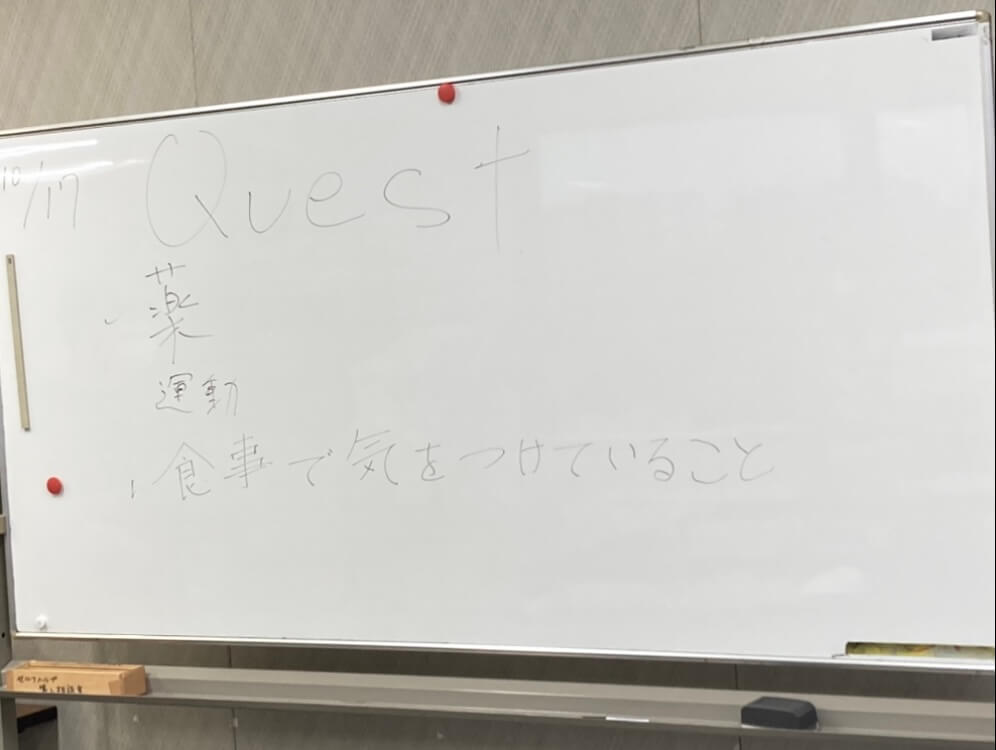 10/17 Quest
薬
運動
食事で気をつけていること
セルフヘルプ